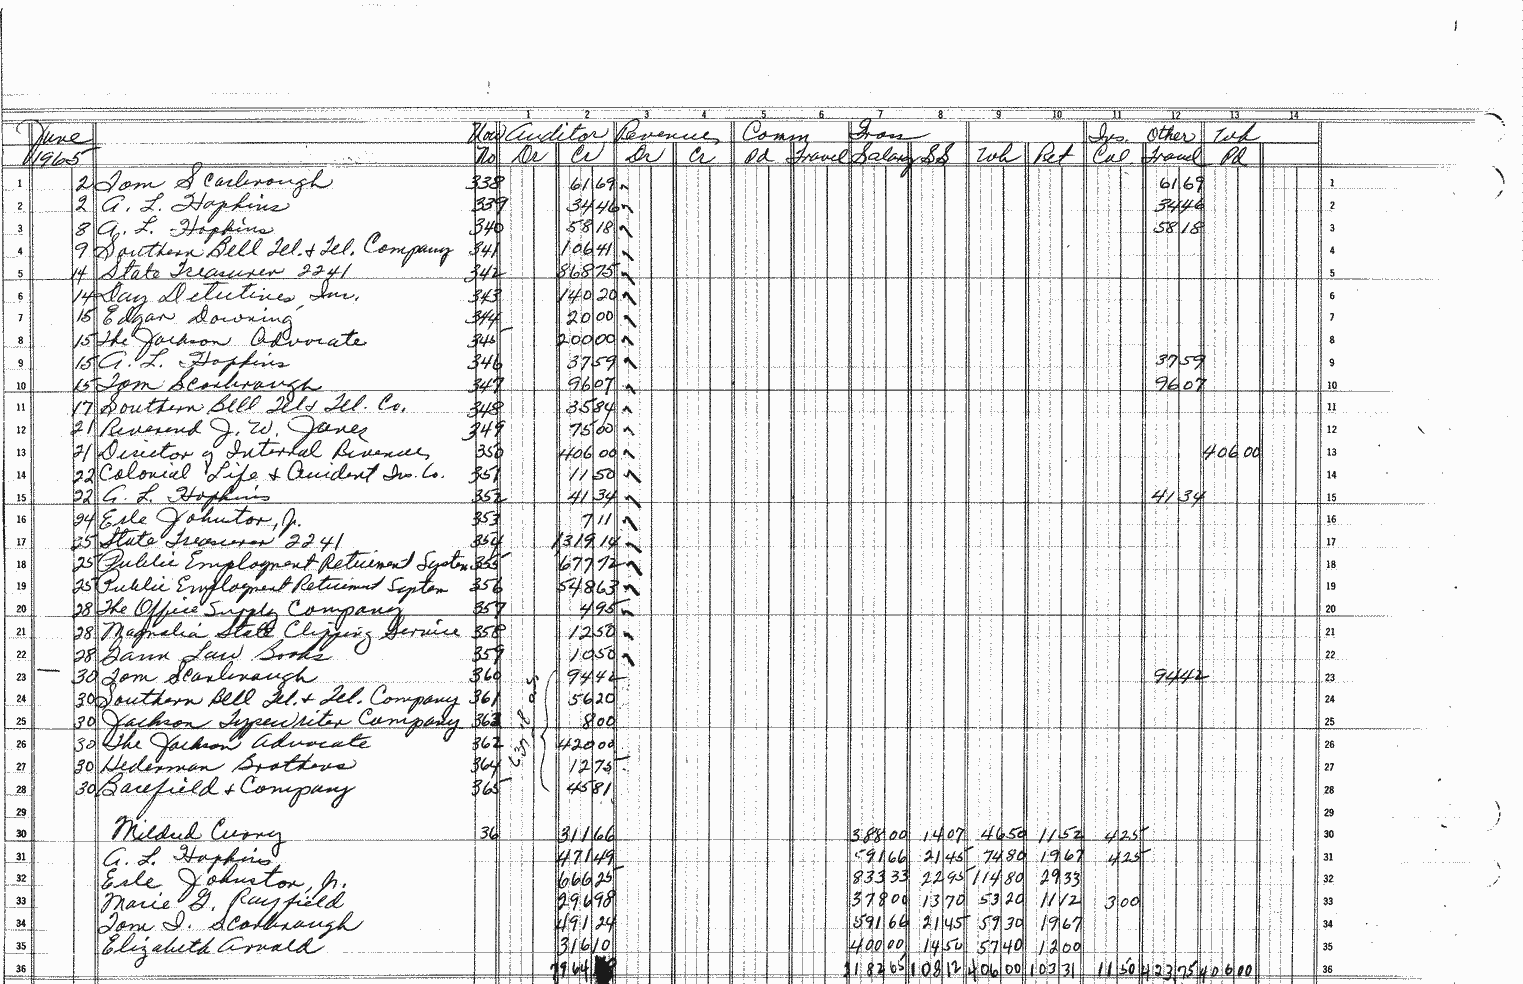 1 2 3 4 5 6 7 8 9 10 11 12 13 14
June Auditor Revenue Comm Ins. Other Wh
1965 No Dr Cr Dr Cr Pd Travel Salary SS Wh Ret Col Travel Pd
1 2 Tom Scarbrough 338 61 69 61 69 1
2 2 A. L. Hopkins 339 34 46 34 46 2
3 8 A. L. Hopkins 340 58 18 58 18 3
4 9 Southern Bell Tel. & Tel. Company 341 106 41 4
5 14 State Treasurer 2241 342 868 75 5
6 14 Day Detectives, Inc. 343 140 20 6
7 15 Edgar Downing 344 20 00 7
8 15 The Jackson Advocate 345 200 00 8
9 15 A. L. Hopkins 346 37 59 37 59 9
10 15 Tom Scarbrough 347 96 07 96 07 10
11 17 Southern Bell Tel & Tel. Co. 348 35 84 11
12 21 Reverend J. W. Jones 349 75 00 12
13 21 Director of Internal Revenue 350 406 00 406 00 13
14 22 Colonial Life & Accident Ins. Co. 351 11 50 14
15 22 A. L. Hopkins 352 41 34 41 34 15
16 24 Erle Johnston, Jr. 353 7 11 16
17 25 State Treasurer 2241 354 1319 14 17
18 25 Public Employment Retirement System 355 677 72 18
19 25 Public Employment Retirement System 356 548 63 19
20 28 The Office Supply Company 357 4 95 20
21 28 Magnolia State Clipping Service 358 12 50 21
22 28 Law Books 359 10 50 22
23 30 Tom Scarbrough 360 94 42 94 42 23
24 30 Southern Bell Tel. & Tel. Company 361 56 20 24
25 30 Jackson Typewriter Company 363 8 00 25
26 30 The Jackson Advocate 362 420 00 26
27 30 Hederman Brothers 364 12 75 27
28 30 Barefield & Company 365 45 81 28
29 29
30 Mildred Curry 36 311 66 388 00 14 07 46 50 11 52 4 25 30
31 A. L. Hopkins 471 49 591 66 21 45 74 80 19 67 4 25 31
32 Erle Johnston, Jr. 666 25 833 33 22 95 114 80 29 33 32
33 Marie G. Rayfield 296 98 378 00 13 70 53 20 11 12 3 00 33
34 Tom I. Scarbrough 491 24 591 66 21 45 59 30 19 67 34
35 Elizabeth Arnold 316 10 400 00 14 50 57 40 12 00 35
36 3182 65 108 12 406 00 103 31 11 50 423 75 406 00 36